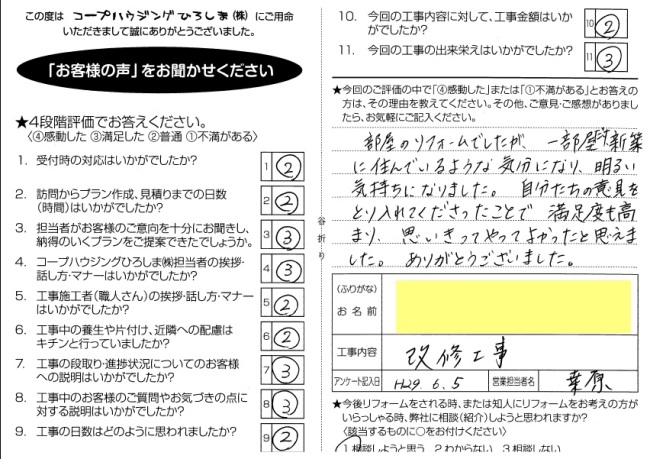 この度は コープハウジングひろしま(株) にご用命
いただきまして誠にありがとうございました。
「お客様の声」をお聞かせください
★4段階評価でお答えください。
〈④感動した ③満足した ②普通 ①不満がある〉
1. 受付時の対応はいかがでしたか?
1 ②
2. 訪問からプラン作成、見積りまでの日数
(時間)はいかがでしたか?
2 ②
3. 担当者がお客様のご意向を十分にお聞きし、
納得のいくプランをご提案できたでしょうか。
3 ③
4. コープハウジングひろしま㈱担当者の挨拶・
話し方・マナーはいかがでしたか?
4 ③
5. 工事施工者(職人さん)の挨拶・話し方・マナー
はいかがでしたか?
5 ②
6. 工事中の養生や片付け、近隣への配慮は
キチンと行っていましたか?
6 ②
7. 工事の段取り・進捗状況についてのお客様
への説明はいかがでしたか?
7 ③
8. 工事中のお客様のご質問やお気づきの点に
対する説明はいかがでしたか?
8 ③
9. 工事の日数はどのように思われましたか?
9 ②
谷折り
10. 今回の工事内容に対して、工事金額はいか
がでしたか?
10 ②
11. 今回の工事の出来栄えはいかがでしたか?
11 ③
★今回のご評価の中で「④感動した」または「①不満がある」とお答えの
方は、その理由を教えてください。その他、ご意見・ご感想がありまし
たら、お気軽にご記入ください。
部屋のリフォームでしたが、一部屋だけ新築
に住んでいるような気分になり、明るい
気持ちになりました。自分たちの意見を
とり入れてくださったことで 満足度も高
まり、思いきってやってよかったと思えま
した。ありがとうございました。
(ふりがな)
お名前
工事内容
改修工事
アンケート記入日
H29. 6. 5
営業担当者名
桑原
★今後リフォームをされる時、または知人にリフォームをお考えの方が
いらっしゃる時、弊社に相談(紹介)しようと思われますか?
〈該当するものに○をお付けください〉
1 相談しようと思う 2 わからない 3 相談しない